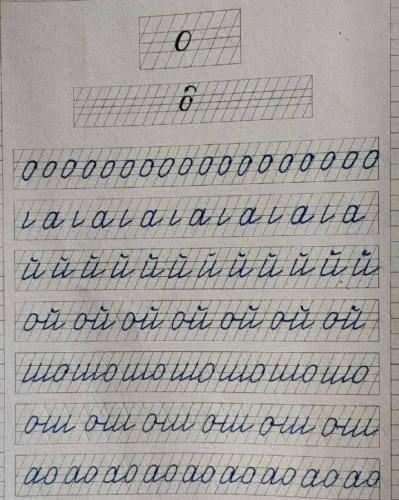 о
о
о о о о о о о о о о о о о о о о о о о
ι а ι а ι а ι а ι а ι а ι а
й й й й й й й й й й й й
ой ой ой ой ой ой ой
шо шо шо шо шо шо шо
ош ош ош ош ош ош
ао ао ао ао ао ао ао ао ао